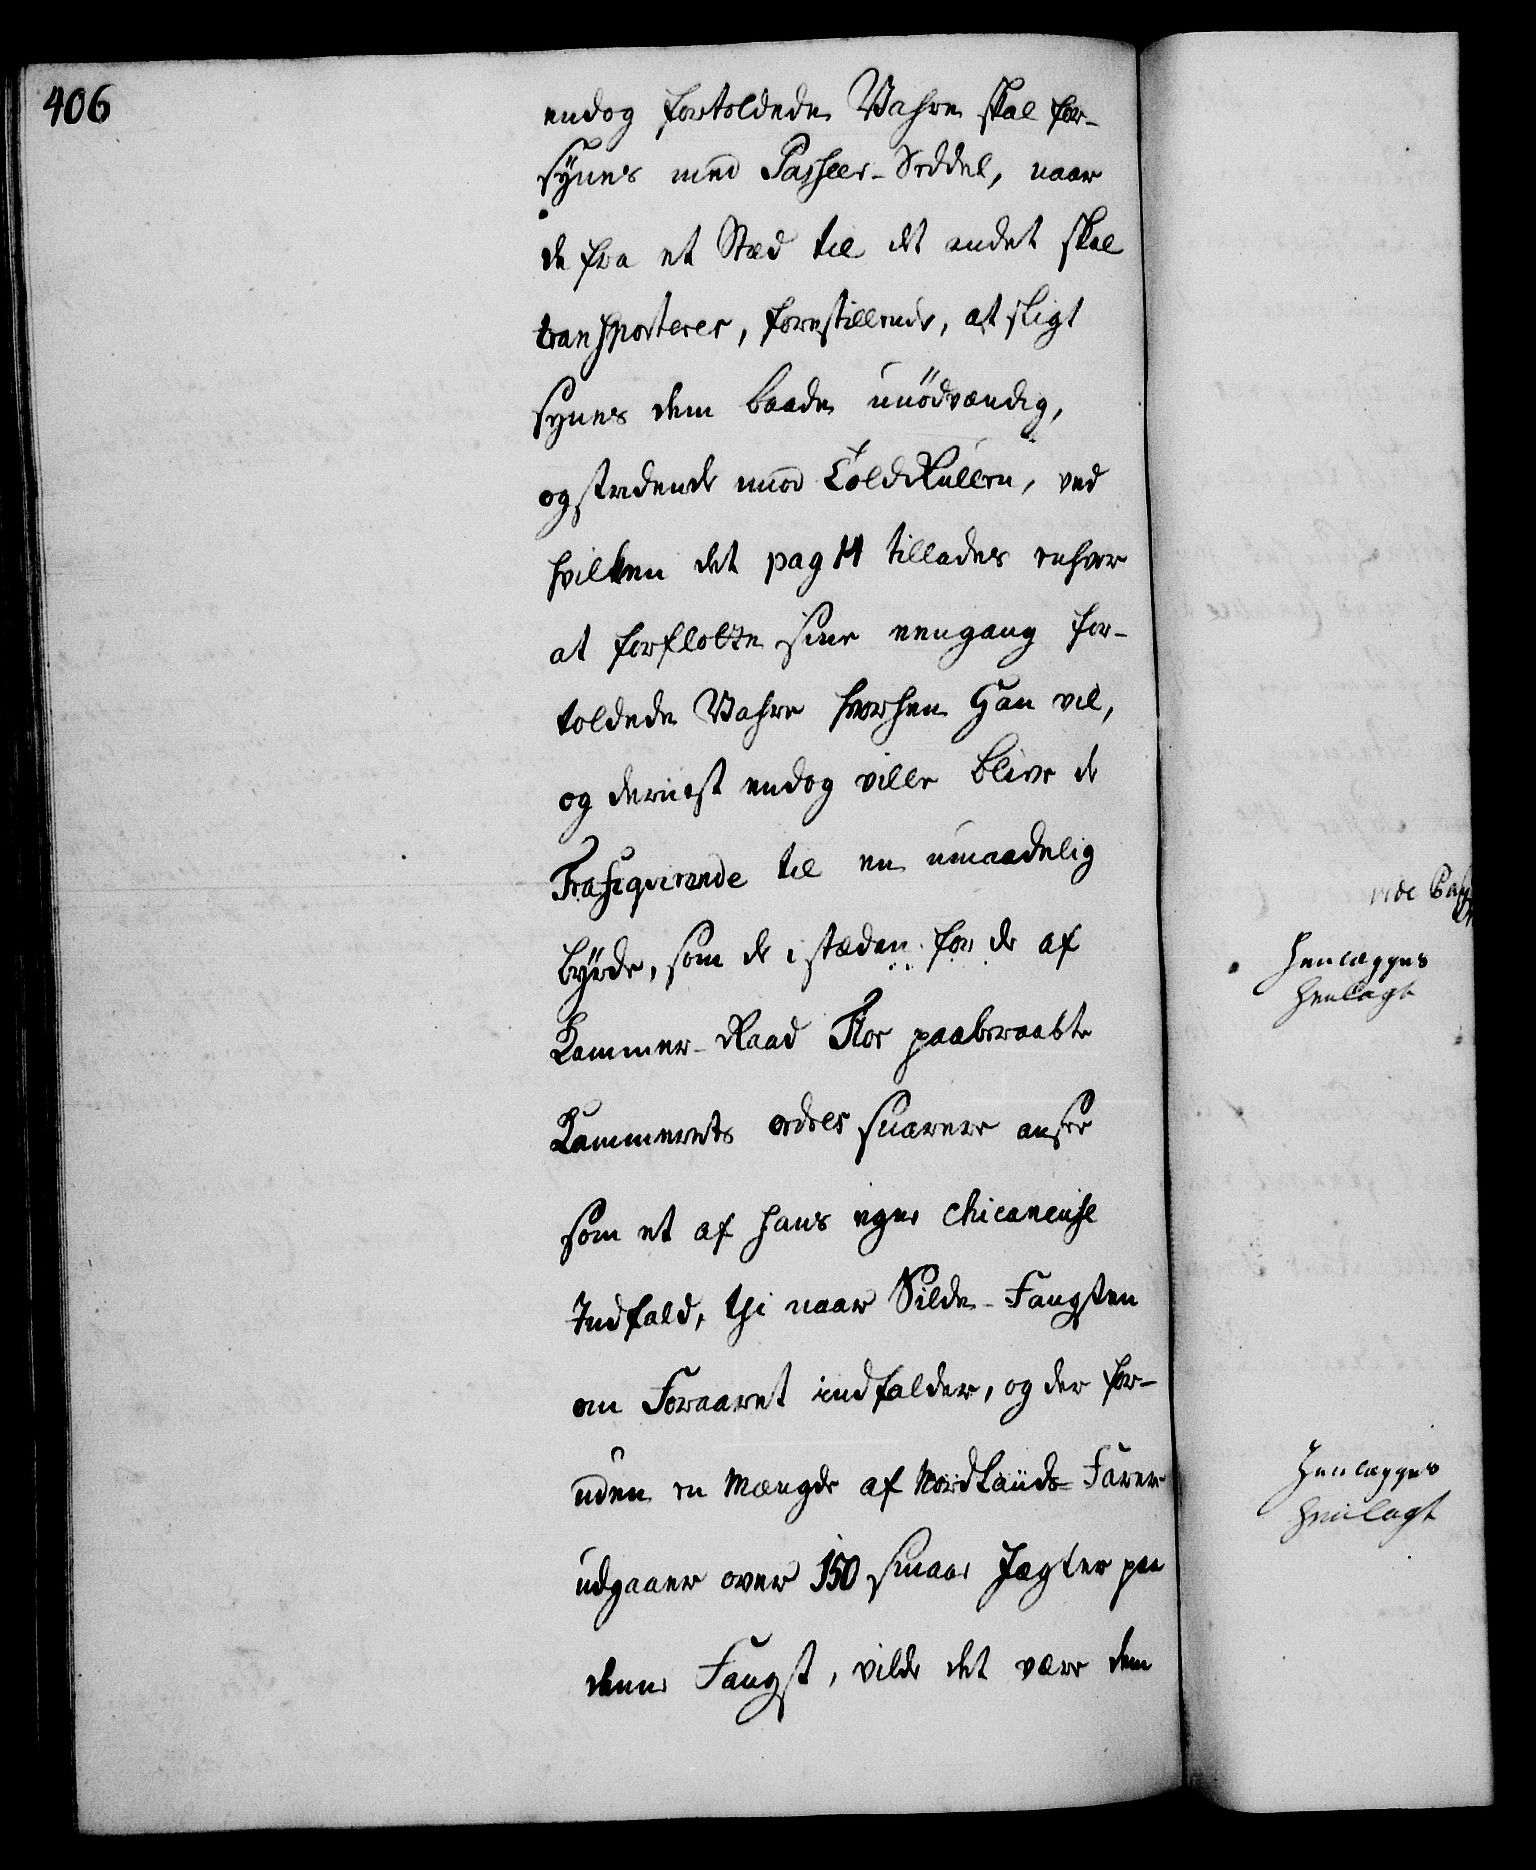 406
endog fortoldede Vahre skal for-
synes med Passeer-Seddel, naar
de fra et Stæd til det andet skal
transporteres, forestillende, at sligt
synes dem baade unödvændig,
og stridende imod ToldRullen, ved
hvilken det pag 14 tillades enhver
at forflötte sine eengang for-
toldede Vahre hvorhen Han vil,
og dernest endog ville blive de
Trafiqverende til en umaadelig
byrde, som de i stæden for de af
Kammer-Raad Flor paaberaabte
Kammerets ordres snarere ansee
som et af hans egne chicaneuse
Indfald, thi naar Silde-Fangsten
om Foraaret indfalder, og der for-
uden en Mængde af Nordlands-Farere
udgaaer over 150 smaae Jægter paa
denne Fangst, vilde det være dem
vide
Henlægges
henlagt
Henlægges
henlagt